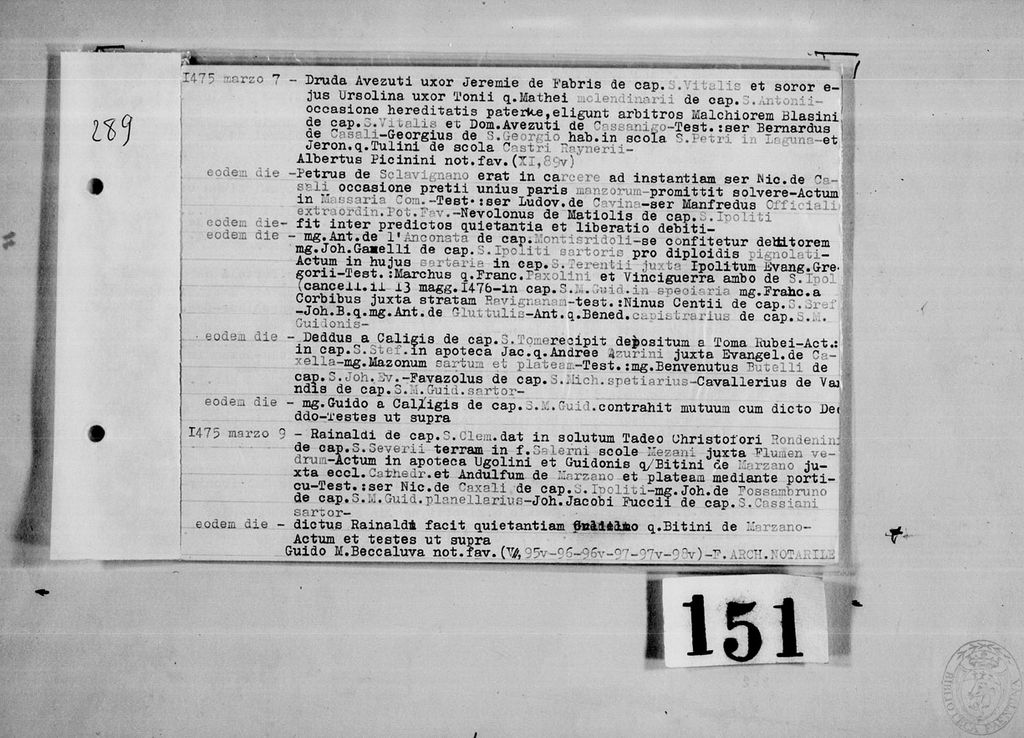 289
1475 marzo 7 - Druda Avezuti uxor Jeremie de Fabris de cap.S.Vitalis et soror e-
jus Ursolina uxor Tonii q.Mathei molendinarii de cap.S.Antonii-
occasione hereditatis paterne,eligunt arbitros Malchiorem Blasini
de cap.S.Vitalis et Dom.Avezuti de Cassanigo-Test.:ser Bernardus
de Casali-Georgius de S.Georgio hab.in scola S.Petri in Laguna-et
Jeron.q.Tulini de scola Castri Raynerii-
Albertus Picinini not.fav.(XI,89v)
eodem die -Petrus de Sclavignano erat in carcere ad instantiam ser Nic.de Ca-
sali occasione pretii unius paris manzorum-promittit solvere-Actum
in Massaria Com.-Test.:ser Ludov.de Cavina-ser Manfredus Officiali
extraordin.Pot.Fav.-Nevolonus de Matiolis de cap.S.Ipoliti
eodem die- fit inter predictos quietantia et liberatio debiti-
eodem die - mg.Ant.de l'Anconata de cap.Montisridoli-se confitetur debitorem
mg.Joh.Gamelli de cap.S.Ipoliti sartoris pro diploidis pignolati-
Actum in hujus sartaria in cap.S.Terentii juxta Ipolitum Evang.Gre-
gorii-Test.:Marchus q.Franc.Paxolini et Vinciguerra ambo de S.Ipol
(cancell.il 13 magg.1476-in cap.S.M.Guid.in speciaria mg.Franc.a
Corbibus juxta stratam Ravignanam-test.:Ninus Centii de cap.S.Bref
-Joh.B.q.mg.Ant.de Gluttulis-Ant.q.Bened.capistrarius de cap.S.M.
Guidonis-
eodem die - Deddus a Caligis de cap.S.Tomerecipit depositum a Toma Rubei-Act.:
in cap.S.Stef.in apoteca Jac.q.Andree Azurini juxta Evangel.de Ca-
xella-mg.Mazonum sartum et plateam-Test.:mg.Benvenutus Butelli de
cap.S.Joh.Ev.-Favazolus de cap.S.Mich.spetiarius-Cavallerius de Va
ndis de cap.S.M.Guid.sartor-
eodem die - mg.Guido a Calligis de cap.S.M.Guid.contrahit mutuum cum dicto De
ddo-Testes ut supra
1475 marzo 9 - Rainaldi de cap.S.Clem.dat in solutum Tadeo Christofori Rondenini
de cap.S.Severii terram in f.Salerni scole Mezani juxta Flumen ve-
drum-Actum in apoteca Ugolini et Guidonis q/Bitini de Marzano ju-
xta eccl.Cathedr.et Andulfum de Marzano et plateam mediante porti-
cu-Test.:ser Nic.de Caxali de cap.S.Ipoliti-mg.Joh.de Fossambruno
de cap.S.M.Guid.planellarius-Joh.Jacobi Fuccii de cap.S.Cassiani
sartor-
eodem die - dictus Rainaldi facit quietantiam q.Bitini de Marzano-
Actum et testes ut supra
Guido M.Beccaluva not.fav.(V,95v-96-96v-97-97v-98v)-F.ARCH.NOTARILE
151